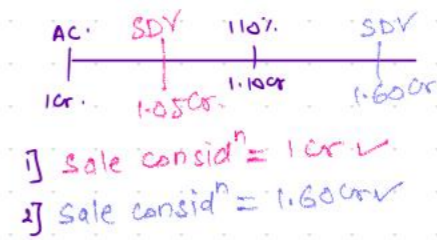 AC. SDV 110% SDV
1Cr. 1.05Cr. 1.10Cr 1.60Cr
1] Sale considⁿ = 1 Cr ✓
2] Sale considⁿ = 1.60Cr ✓